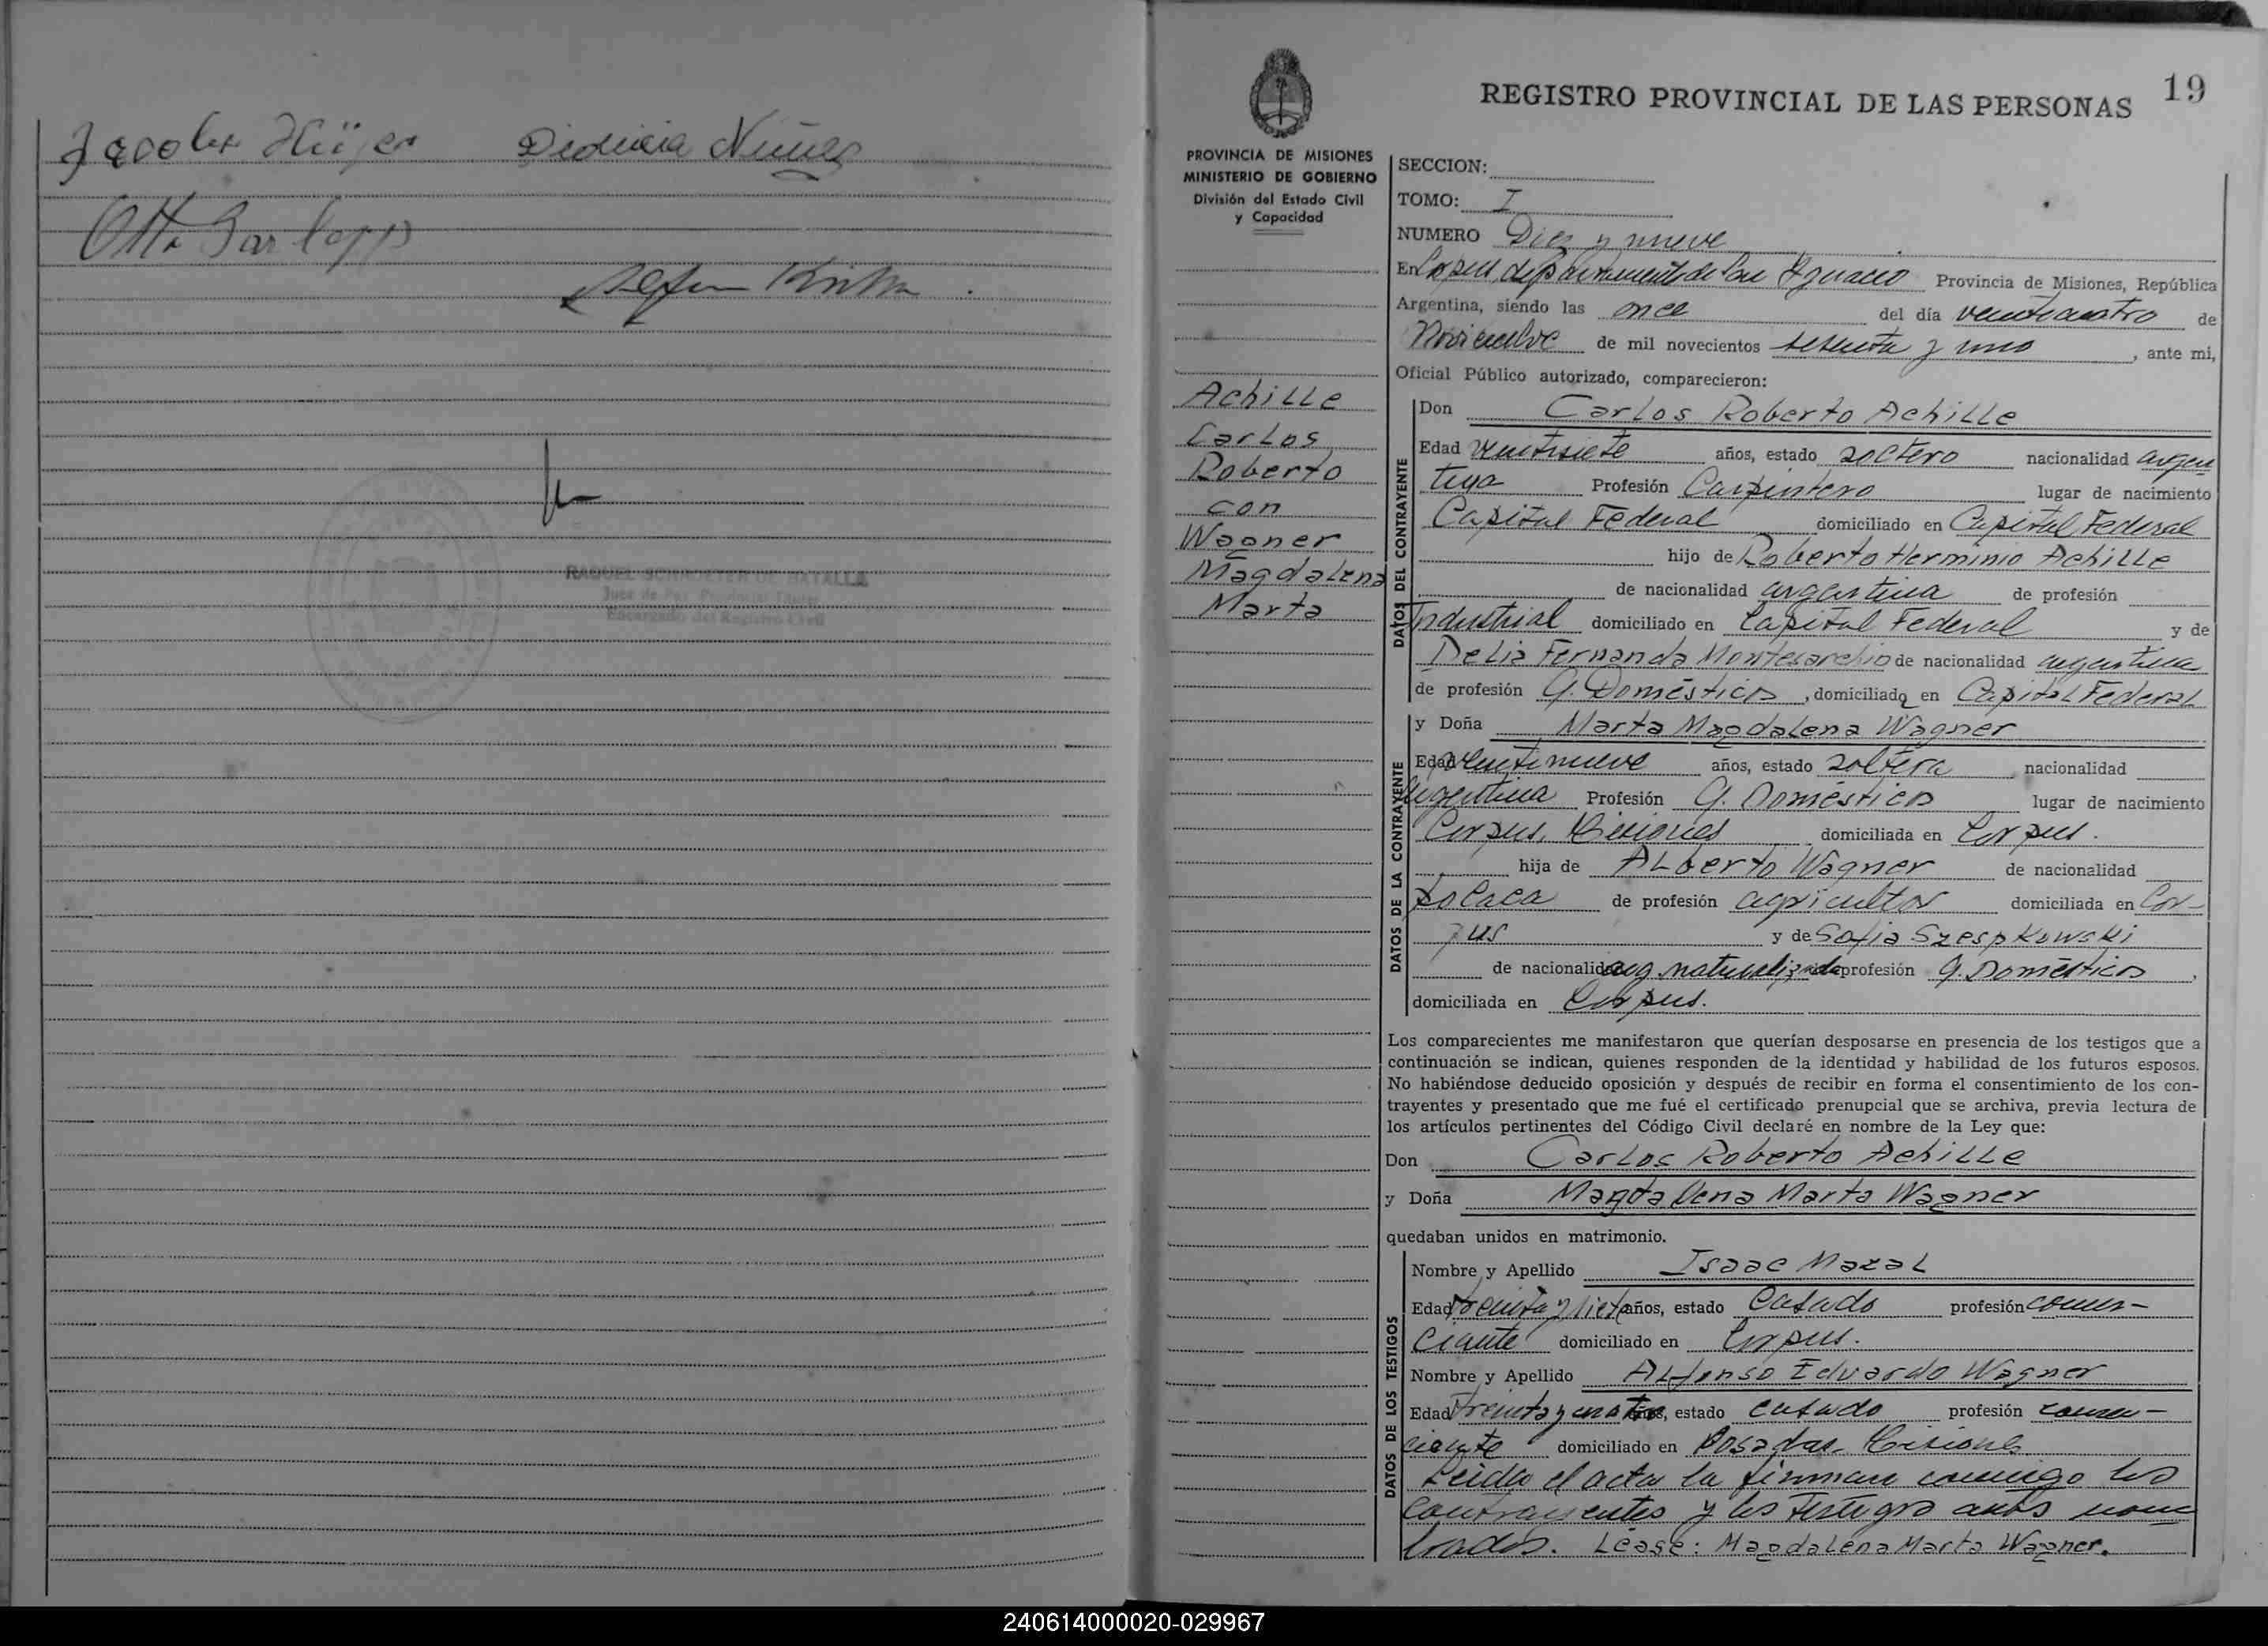 Jacobo
Núñez
Otto
RAQUEL SCHROETER DE BATALLA
Juez de Paz Provincial Titular
Encargado del Registro Civil
REGISTRO PROVINCIAL DE LAS PERSONAS
19
PROVINCIA DE MISIONES
MINISTERIO DE GOBIERNO
División del Estado Civil
y Capacidad
Achille
Carlos
Roberto
con
Wagner
Magdalena
Marta
SECCION:
TOMO: I
NUMERO Diez y nueve
En Corpus, departamento de San Ignacio Provincia de Misiones, República
Argentina, siendo las once del día veinticuatro de
Noviembre de mil novecientos setenta y uno, ante mi,
Oficial Público autorizado, comparecieron:
DATOS DEL CONTRAYENTE
Don Carlos Roberto Achille
Edad veintisiete años, estado soltero nacionalidad argen
tina Profesión Carpintero lugar de nacimiento
Capital Federal domiciliado en Capital Federal
hijo de Roberto Herminio Achille
de nacionalidad argentina de profesión
Industrial domiciliado en Capital Federal y de
Delia Fernanda Montesarchio de nacionalidad argentina
de profesión Q. Domésticos, domiciliada en Capital Federal
DATOS DE LA CONTRAYENTE
y Doña Marta Magdalena Wagner
Edad veintinueve años, estado soltera nacionalidad
Argentina Profesión Q. Domésticos lugar de nacimiento
Corpus, Misiones domiciliada en Corpus.
hija de Alberto Wagner de nacionalidad
polaca de profesión agricultor domiciliada en Cor-
pus y de Sofia Szespkowski
de nacionalidad arg. naturalizada profesión Q. Domésticos,
domiciliada en Corpus.
Los comparecientes me manifestaron que querían desposarse en presencia de los testigos que a
continuación se indican, quienes responden de la identidad y habilidad de los futuros esposos.
No habiéndose deducido oposición y después de recibir en forma el consentimiento de los con-
trayentes y presentado que me fué el certificado prenupcial que se archiva, previa lectura de
los artículos pertinentes del Código Civil declaré en nombre de la Ley que:
Don Carlos Roberto Achille
y Doña Magdalena Marta Wagner
quedaban unidos en matrimonio.
DATOS DE LOS TESTIGOS
Nombre y Apellido Isaac Mazal
Edad treinta y siete años, estado Casado profesión comer-
ciante domiciliado en Corpus.
Nombre y Apellido Alfonso Eduardo Wagner
Edad treinta y cuatro años, estado casado profesión comer-
ciante domiciliado en Posadas, Misiones
Leída el acta la firman conmigo los
contrayentes y los testigos antes nom
brados. Léase: Magdalena Marta Wagner.
240614000020-029967